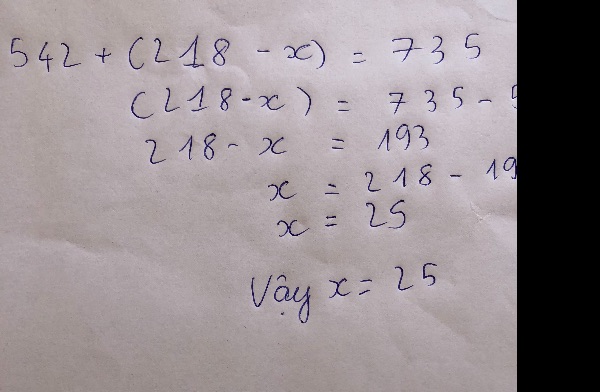 542 + (218 - x) = 735
(218 - x) = 735 -
218 - x = 193
x = 218 - 19
x = 25
Vậy x = 25